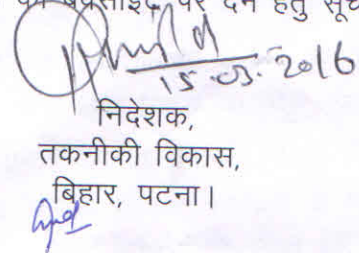 वेबसाईट पर देने हेतु सूच
15.03.2016
निदेशक,
तकनीकी विकास,
बिहार, पटना।